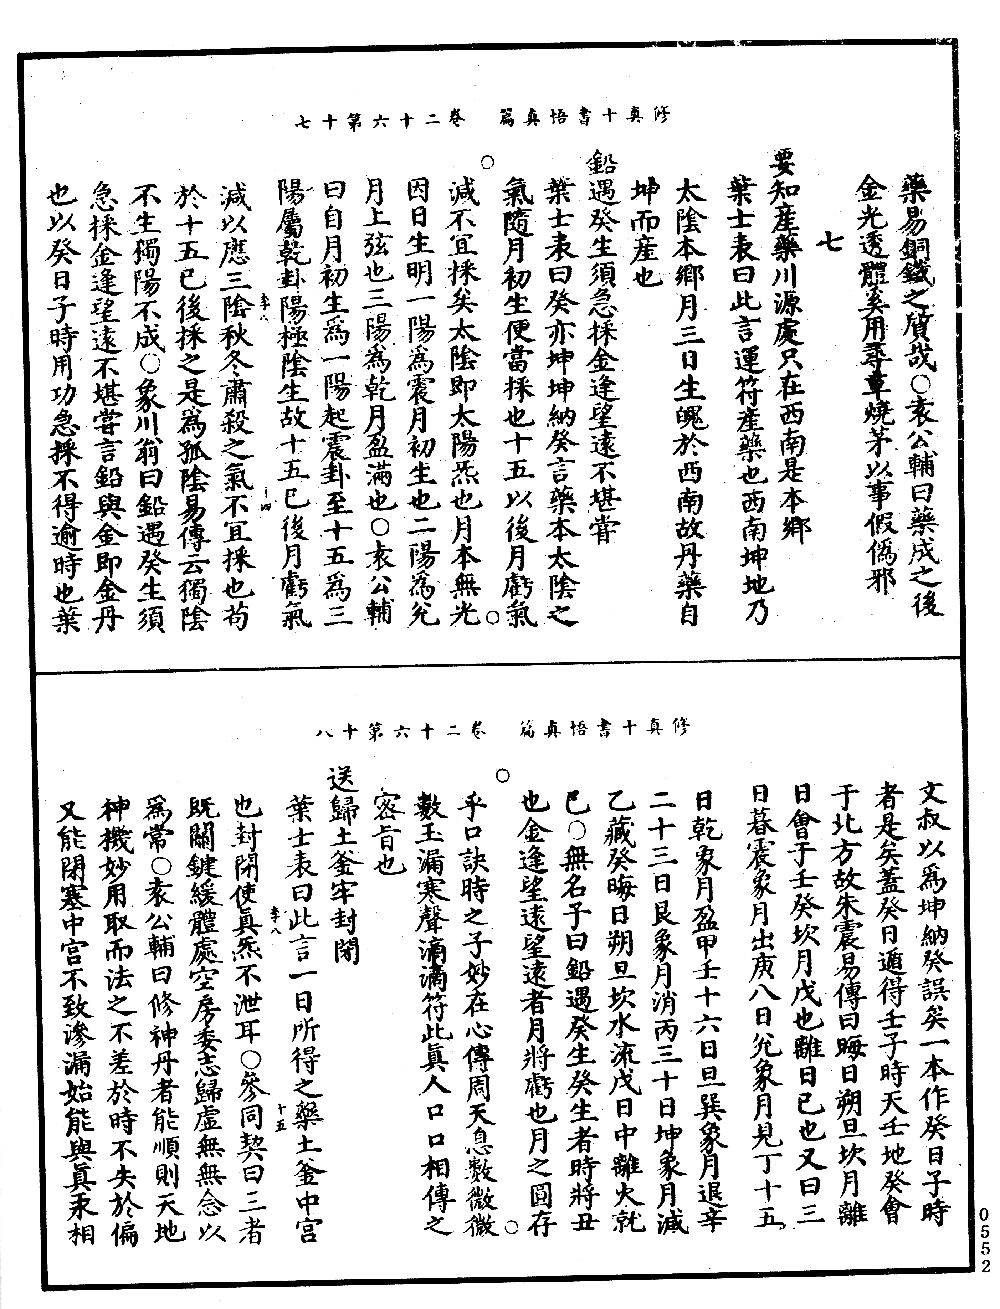 修真十書悟真篇　卷二十六第十七
藥易銅鐵之質哉○袁公輔曰藥成之後
金光透體奚用尋草燒茅以事假僞邪
七
要知產藥川源處只在西南是本鄉
葉士表曰此言運符產藥也西南坤地乃
太陰本鄉月三日生魄於西南故丹藥自
坤而產也
鉛遇癸生須急採金逢望遠不堪嘗
葉士表曰癸亦坤坤納癸言藥本太陰之
氣隨月初生便當採也十五以後月虧氣
減不宜採矣太陰即太陽炁也月本無光
因日生明一陽爲震月初生也二陽爲兊
月上弦也三陽爲乾月盈滿也○袁公輔
曰自月初生爲一陽起震卦至十五爲三
陽屬乾卦陽極陰生故十五已後月虧氣
李八　十四
減以應三陰秋冬肅殺之氣不宜採也苟
於十五已後採之是爲孤陰易傳云獨陰
不生獨陽不成○象川翁曰鉛遇癸生須
急採金逢望遠不堪嘗言鉛與金即金丹
也以癸日子時用功急採不得逾時也葉
修真十書悟真篇　卷二十六第十八
文叔以爲坤納癸誤矣一本作癸日子時
者是矣蓋癸日遁得壬子時天壬地癸會
于北方故朱震易傳曰晦日朔旦坎月離
日會于壬癸坎月戊也離日己也又曰三
日暮震象月出庚八日兊象月見丁十五
日乾象月盈甲壬十六日旦巽象月退辛
二十三日艮象月消丙三十日坤象月滅
乙藏癸晦日朔旦坎水流戊日中離火就
己○無名子曰鉛遇癸生癸生者時將丑
也金逢望遠望遠者月將虧也月之圓存
乎口訣時之子妙在心傳周天息數微微
數玉漏寒聲滴滴符此眞人口口相傳之
密旨也
送歸土釜牢封閉
葉士表曰此言一日所得之藥土釜中宮
李八　十五
也封閉使眞炁不泄耳○參同契曰三者
旣關鍵緩體處空房委志歸虛無無念以
爲常○袁公輔曰修神丹者能順則天地
神機妙用取而法之不差於時不失於偏
又能閉塞中宮不致滲漏始能與眞汞相
0552